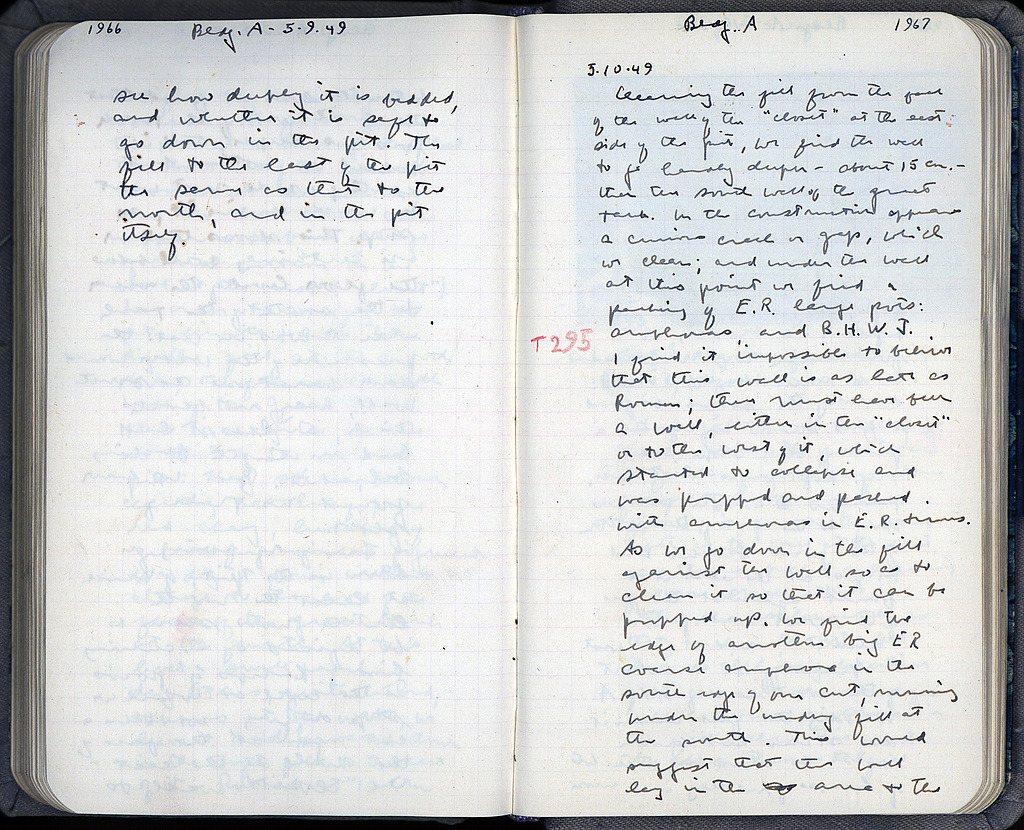 1966
Bldg. A - 5.9.49
see how deeply it is bedded,
and whether it is safe to
go down in the pit. The
fill to the east of the pit
the same as that to the
north, and in the pit
itself.
Bldg. A
1967
5.10.49
Cleaning the fill from the face
of the wall of the "closet" at the east
side of the pit, we find the wall
to go barely deeper - about 15 cm. -
than the south wall of the great
tank. In the construction appears
a curious crack or gap, which
we clean; and under the wall
at this point we find a
packing of E.R. large pots:
amphoras and B.H.W.J.
T295
I find it impossible to believe
that this wall is as late as
Roman; there must have been
a well, either in the "closet"
or to the west of it, which
started to collapse and
was propped and packed
with amphoras in E.R. times.
As we go down in the fill
against the wall so as to
clean it so that it can be
propped up, we find the
edge of another big ER
coarse amphora in the
south edge of our cut, running
under the fill at
the south. This would
suggest that the well
lay in the area to the